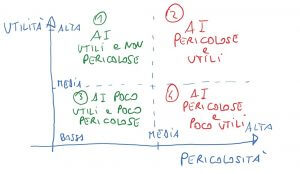 UTILITÀ
ALTA
①
AI
UTILI e NON
PERICOLOSE
②
AI
PERICOLOSE
e
UTILI
MEDIA
③ AI POCO
UTILI e POCO
PERICOLOSE
④ AI
PERICOLOSE
e
POCO UTILI
BASSA
MEDIA
ALTA
PERICOLOSITÀ